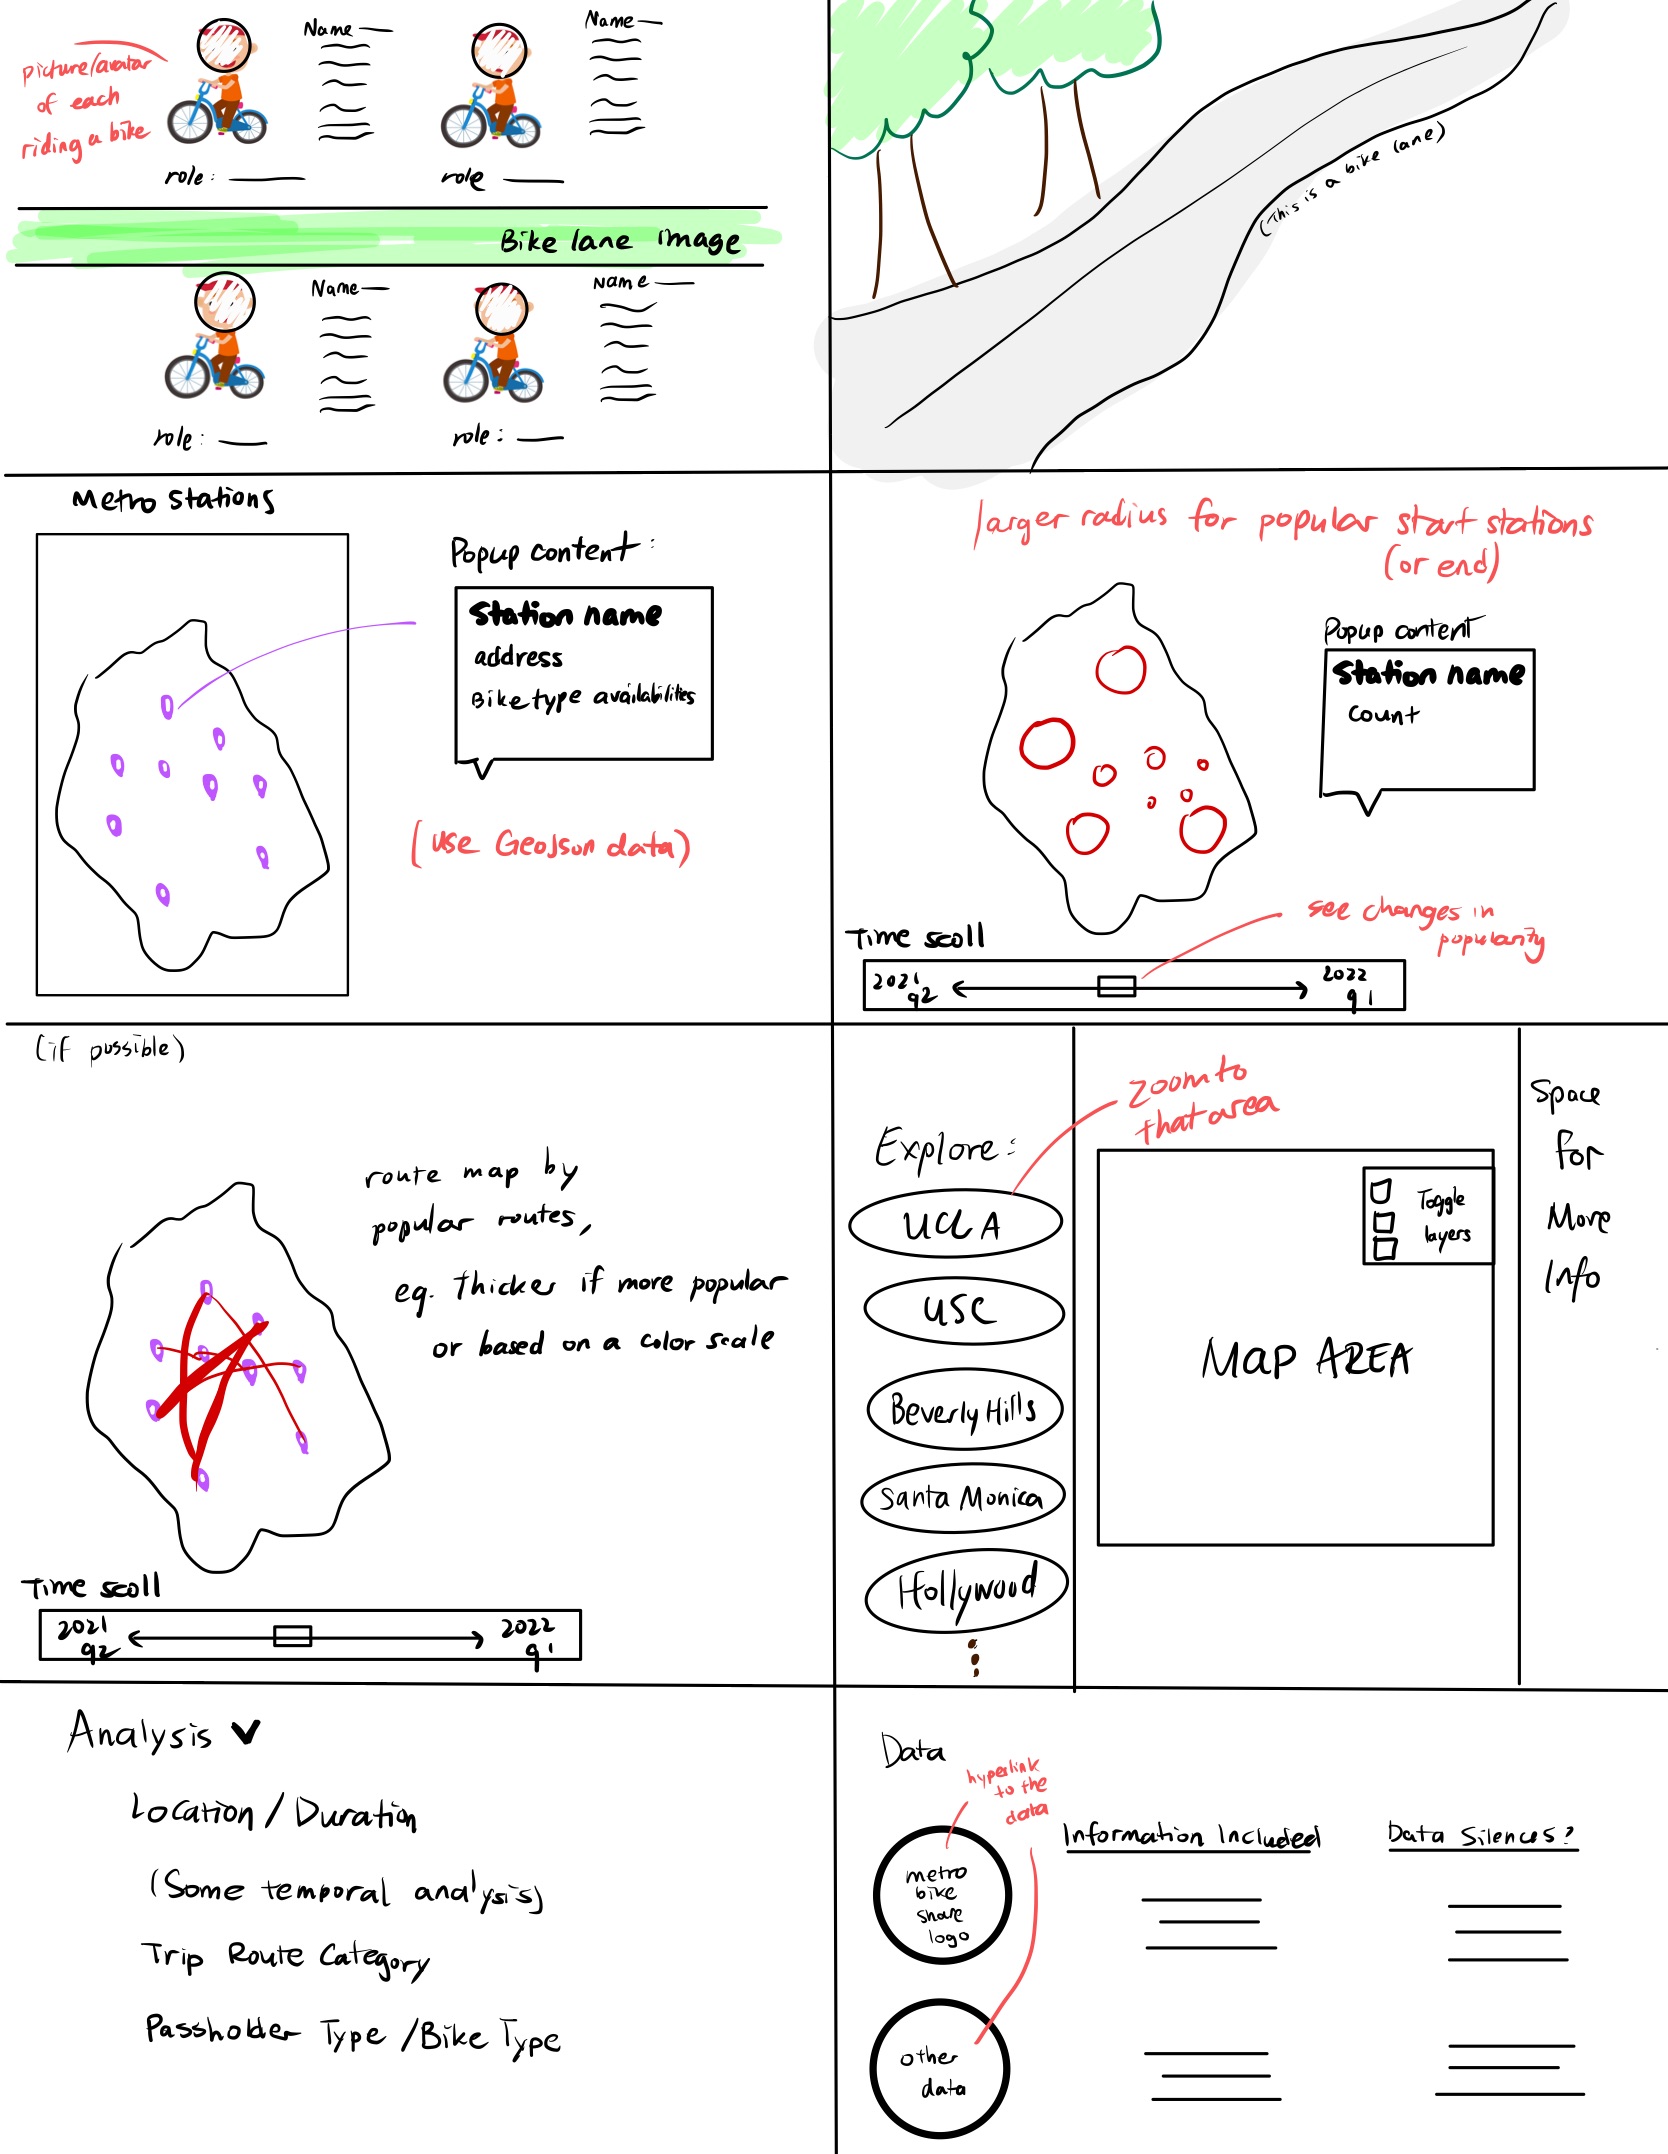 picture/avatar
of each
riding a bike
Name
role:
Name
role
Bike lane image
Name
role:
Name
role:
(This is a bike lane)
Metro Stations
Popup content:
Station name
address
Bike type availabilities
(use GeoJson data)
larger radius for popular start stations
(or end)
Popup content
Station name
count
see changes in
popularity
Time scoll
2021
q2
2022
q1
(if possible)
route map by
popular routes,
eg. thicker if more popular
or based on a color scale
Time scoll
2021
q2
2022
q1
Zoom to
that area
Explore:
UCLA
USC
Beverly Hills
Santa Monica
Hollywood
Toggle
layers
Map AREA
Space
For
More
Info
Analysis
Location / Duration
(Some temporal analysis)
Trip Route Category
Passholder Type / Bike Type
Data
hyperlink
to the
data
metro
bike
share
logo
Information Included
Data Silences?
other
data